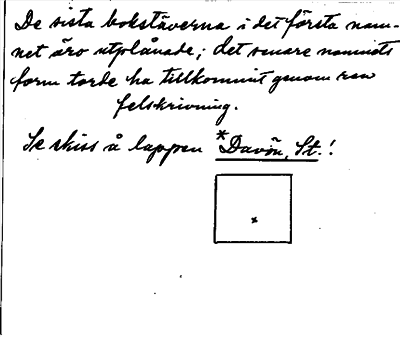 De sista bokstäverna i det första nam-
net äro utplånade; det senare namnets
form torde ha tillkommit genom ren
felskrivning.
Se skiss å lappen *Davön, St.!